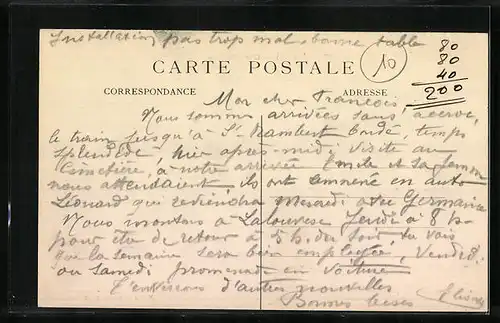 Installation pas trop mal bonne table
80
80
40
200
10
CARTE POSTALE
CORRESPONDANCE
ADRESSE
Mon cher François
Nous sommes arrivées sans accroc,
le train jusqu'à St Rambert bondé, temps
splendide, hier après-midi visite au
Cimetière, à notre arrivée Emile et sa femme
nous attendaient, ils ont amnené en auto
Léonard qui reviendra Mercredi avec Germaine
Nous montons à Lalouvesc Jeudi à 8 h
pour être de retour à 5 h du soir, tu vois
que la semaine sera bien employée, Vendredi
ou Samedi promenade en voiture
T'enverrons d'autres nouvelles
Bonnes bises